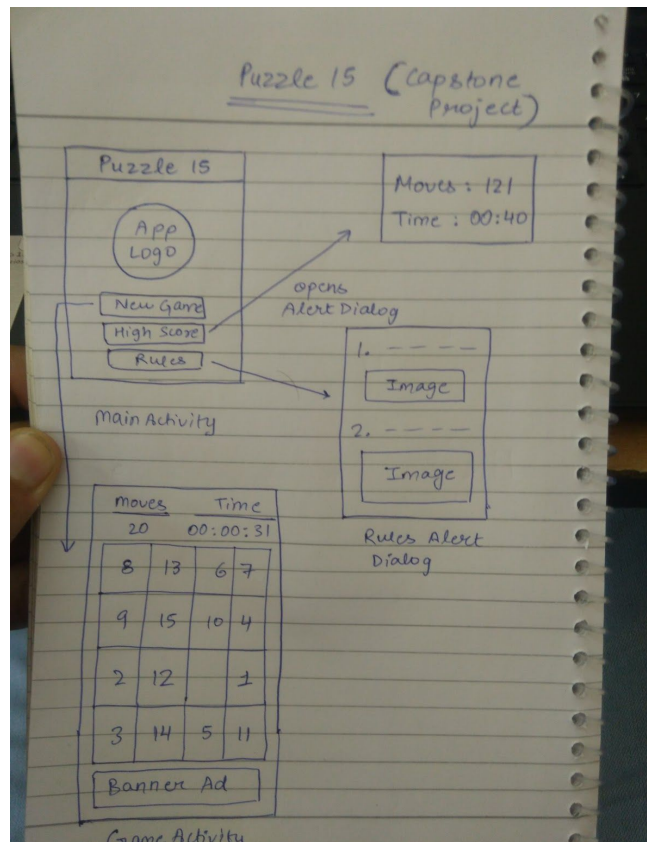 Puzzle 15 (Capstone
Project)
Puzzle 15
App
Logo
New Game
High Score
Rules
Main Activity
Moves : 121
Time : 00:40
opens
Alert Dialog
1.
Image
2.
Image
Rules Alert
Dialog
Moves Time
20 00:00:31
8 13 6 7
9 15 10 4
2 12 1
3 14 5 11
Banner Ad
Game Activity